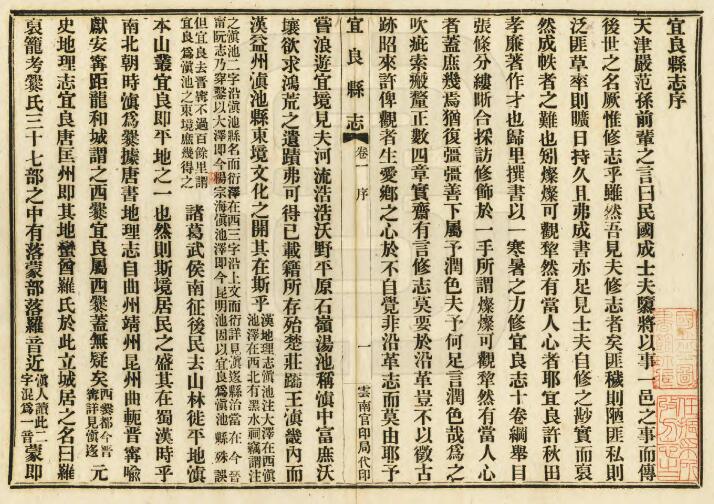 宜良縣志序
天津嚴范孫前輩之言曰民國成士夫隳將以事一邑之事而傳
後世之名厥惟修志乎雖然吾見夫修志者矣匪穢則陋匪私則
泛匪草率則曠日持久且弗成書亦足見士夫自修之尠實而裒
然成帙者之難也矧燦燦可觀犂然有當人心者耶宜良許秋田
孝廉著作才也歸里撰書以一寒暑之力修宜良志十卷綱舉目
張條分縷晰合採訪修飾於一手所謂燦燦可觀犂然有當人心
者蓋庶幾焉猶復彊彊善下屬予潤色夫予何足言潤色哉爲之
吹疵索瘢釐正數四章實齋有言修志莫要於沿革豈不以徵古
跡昭來許俾觀者生愛鄉之心於不自覺非沿革志而莫由耶予
宜良縣志
卷一 序
一
雲南官印局代印
嘗浪遊宜境見夫河流浩浩沃野平原石嶺湯池稱滇中富庶沃
壤欲求鴻荒之遺蹟弗可得已載籍所存殆楚莊蹻王滇畿內而
漢益州滇池縣東境文化之開其在斯乎
漢地理志滇池注大澤在西滇
池澤在西北有黑水祠竊謂注
之滇池二字沿滇池縣名而衍澤在西三字沿上文而衍詳見滇逡縣治當在今晉
甯阮志乃穿鑿以大澤即今楊宗海滇池澤即今昆明池因以宜良爲滇池縣殊誤
但宜良去晉甯不過百餘里謂
宜良爲滇池之東境庶幾得之
諸葛武侯南征後民去山林徙平地滇
本山叢宜良即平地之一也然則斯境居民之盛其在蜀漢時乎
南北朝時滇爲爨據唐書地理志自曲州靖州昆州曲軛晉甯喻
獻安甯距龍和城謂之西爨宜良屬西爨蓋無疑矣
西爨都今晉
甯詳見滇逡
元
史地理志宜良唐匡州即其地蠻酋羅氏於此立城居之名曰羅
裒籠考爨氏三十七部之中有落蒙部落羅音近
滇人讀此二
字混爲一音
蒙即